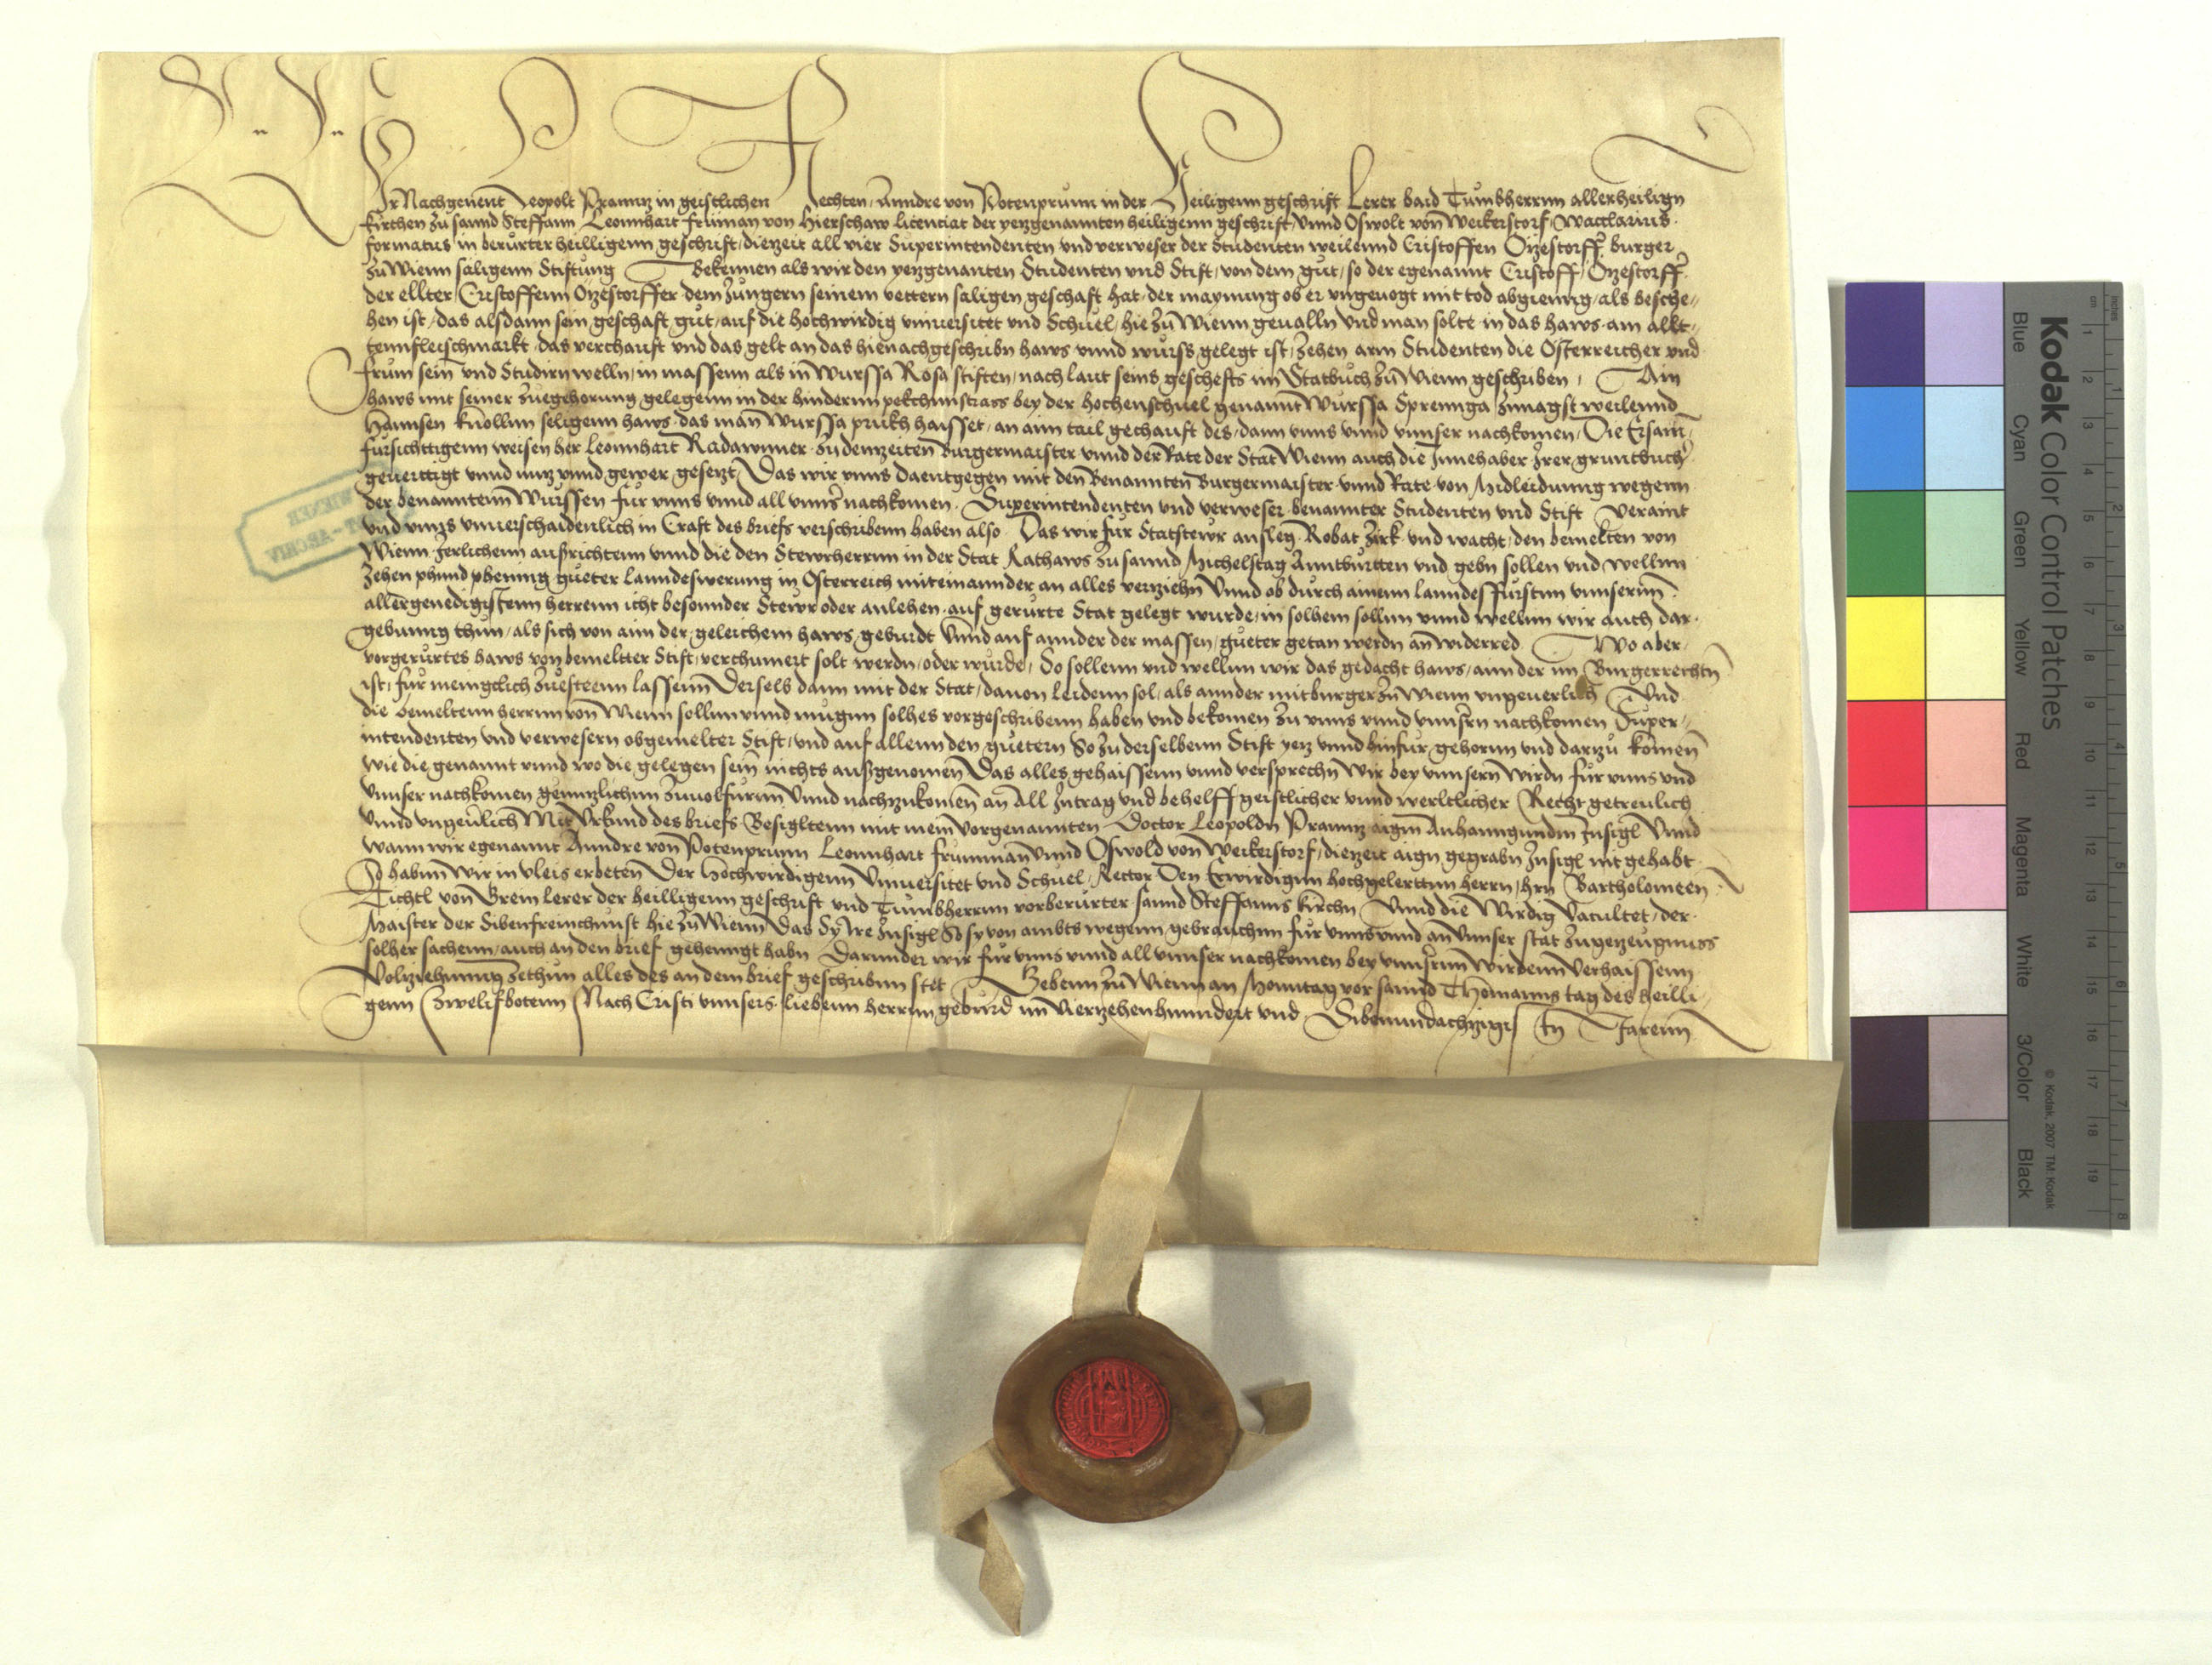 Wir Nachgenent Leopolt Pranntz in geistlichen Rechten / Anndre von Potenprunn in der Heiligenn geschrift Lerer baid Tumbherrnn allerheilign
kirchen zu sannd Steffann Leonnhart fruman von Hierschaw licenciat der yetzgenannten heiligenn geschrift / vnnd Oswolt von Weikerstorf / Waccalarius
formatus in berurter heilligenn geschrift / dietzeit all vier Superintendenten vnd verweser der Studenten weilennd Cristoffen Otzestorffer burger
zu Wienn saligenn Stiftung Bekennen als wir den yetzgenanten Studenten vnd Stift / von dem gut / so der egenannt Cristoff Otzestorffer
der ellter Cristoffenn Otzestorffer dem Jungern seinem vettern saligen geschaft hat / der maynung ob er vngeuogt mit tod abgienng / als besche-
hen ist / das alsdann sein geschaft gut / auf die hochwirdig vniuersitet vnd Schuel / hie zu Wienn geualln vnd man solte in das haws am allt-
tennfleischmarkt / das verchauft vnd das gelt an das hienachgeschribn haws vnnd wurss gelegt ist / zehen arm Studenten die Osterreicher vnd
frum sein vnd Studirn welln / in massenn als in Wurssa Rosa stiften / nach laut seins geschefts im Statbuch zu Wienn geschriben / Ain
haws mit seiner zuegehorung gelegenn in der hindernn pekchnnstrass bey der hochenschuel genannt Wurssa Sprennga zunagst weilennd
Hannsen knollnn seligenn haws das man Wurssa prukh haisset / an aim tail gechauft des / dann vnns vnnd vnnser nachkomen / Die Ersam
fursichttigenn weisen her Leonnhart Radawnner zu denzeiten Burgermaister vnnd der Rate der Stat Wienn auch die Innehaber Irer gruntbuch
geuerttigt vnnd nutz vnnd gewer gesetzt Das wir vnns daentgegen mit den Benannten Burgermaister vnnd Rate von Midleidunng wegenn
der benanntenn Wurssen fur vnns vnnd all vnnser nachkomen Superintendenten vnd verweser benannter Studenten vnd Stift veraint
vnd vnns vnuerschaidenlich in Craft des briefs verschribenn haben also Das wir fur Statstewr ansleg Robat Zirk vnd wacht / den bemelten von
Wienn Jerlichenn ausrichtenn vnnd die den Stewrherrnn in der Stat Rathaws zu sannd Michelstag Anntburtten vnd gebn sollen vnd wellnn
zehen phund phening gueter lanndeswerung in Osterreich miteinannder an alles verziehn Vnnd ob durch ainenn lanndesfurstnn vnnserm
allergenedigistenn herrenn icht besonnder Stewr oder anlehen auf gerurte Stat gelegt wurde / in solhem sollnn vnnd wellnn wir auch dar-
gebunng thun / als sich von aim der geleichem haws geburdt Vnnd auf annder der massen / gueter getan werdn an widerred Wo aber
vorgerurtes haws von bemeltter Stift / verchumert solt werdn / oder wurde / So sollenn vnd wellnn wir das gedacht haws / aim der im Burgerrechtn
ist / fur menngclich zuesteenn lassenn Derselb dann mit der Stat / dauon leidenn sol / als annder mitburger zu Wienn vngeuerlich Vnd
die bemeltenn herrnn von Wienn sollnn vnnd mugnn solhes vorgeschribenn haben vnd bekomen zu vnns vnnd vnnsern nachkomen Super-
intendenten vnd verwesern obgemelter Stift / vnd auf allenn den guetern So zu derselbenn Stift yetz vnnd hinfur gehornn vnd dartzu komen
wie die genannt vnnd wo die gelegen sein nichts außgenomen Das alles gehaissenn vnnd versprechn wir bey vnnsern wirdn fur vnns vnd
vnnser nachkomen genntzlichnn zuuolfurnn Vnnd nachtzukomen an All Intrag vnd behelff geistlicher vnnd werltlicher Recht getreulich
vnnd vngeuerlich Mit Vrkund des briefs Besigltenn mit mein vorgenannten Doctor Leopoldn Pranntz aigm Anhanngundm Insigl Vnnd
wann wir egenannt Anndre von Potenprunn Leonnhart frumman Vnnd Oswold von Weikerstorf / dietzeit aign gegrabn Insigl nit gehabt
So habnn wir in vleis erbeten Der Hochwirdigenn Vniuersitet vnd Schuel / Rector Den Erwirdigen hochgelerttnn herrn / hrn Bartholomeen
Tichtl von Grein lerer der heilligenn geschrift vnd Tumbherrnn vorberurter sannd Steffanns kirchn Vnnd die Wirdig Facultet / der
Maister der Sibenfreinchunst hie zu Wienn Das Sy Ire Insigl So sy von ambts wegenn gebrauchnn fur vnns vnnd an vnnser stat zugetzeugnuss
solher sachenn / auch an den brief gehenngt habn Darunder wir fur vnns vnnd all vnnser nachkomen bey vnnsernn wirdenn verhaissenn
Voltziehunng zethun alles des an dem brief geschribnn stet Gebenn zu Wienn an Monntag vor sannd Thomanns tag des heilli-
genn Zwelifbotenn Nach Cristi vnnsers liebenn herrnn geburd im Viertzehenhunndert vnd Sibenundachtzigist In Jarenn
WIENER
ARCHIV
Kodak Color Control Patches
Blue Cyan Green Yellow Red Magenta White 3/Color Black
© Kodak, 2007 TM: Kodak
cm 1 2 3 4 5 6 7 8 9 10 11 12 13 14 15 16 17 18 19
inches 1 2 3 4 5 6 7 8